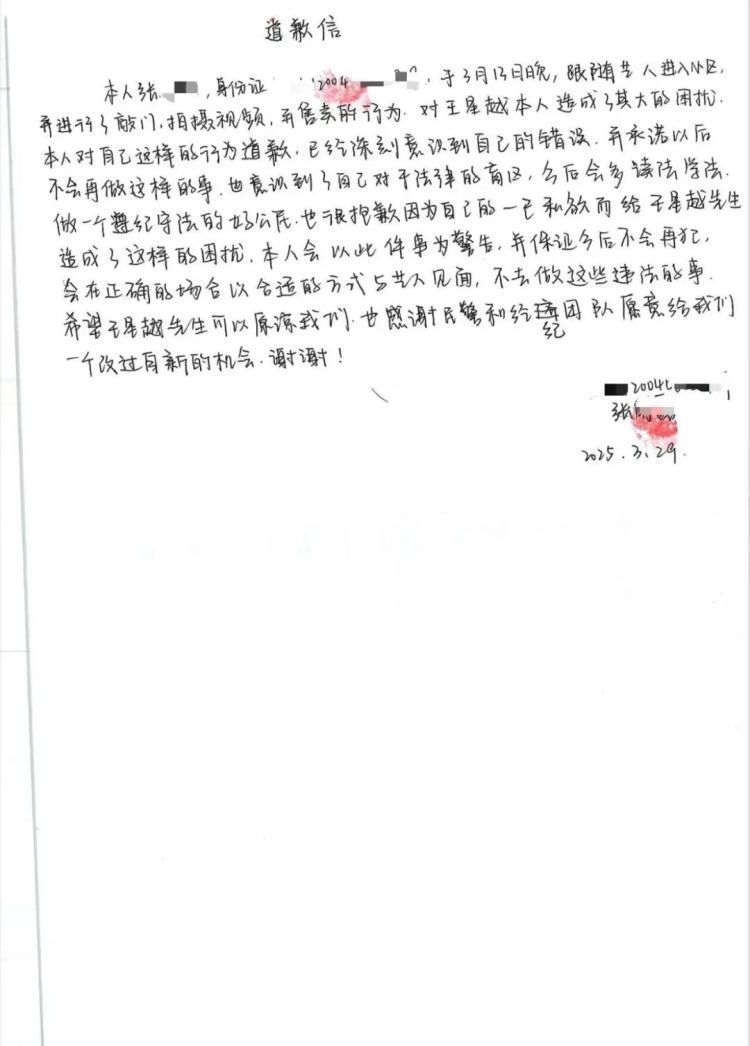 道歉信
本人张 ，身份证 2004 ，于3月13日晚，跟随艺人进入小区，
并进行了敲门，拍摄视频，并售卖的行为．对王星越本人造成了莫大的困扰．
本人对自己这样的行为道歉，已经深刻意识到自己的错误．并承诺以后
不会再做这样的事．也意识到了自己对于法律的盲区，今后会多读法学法．
做一个遵纪守法的好公民．也很抱歉因为自己的一己私欲而给王星越先生
造成了这样的困扰，本人会以此件事为警告，并保证今后不会再犯，
会在正确的场合以合适的方式与艺人见面，不去做这些违法的事．
希望王星越先生可以原谅我们．也感谢民警和经纪团队愿意给我们
一个改过自新的机会．谢谢！
2004
张
2025.3.29.